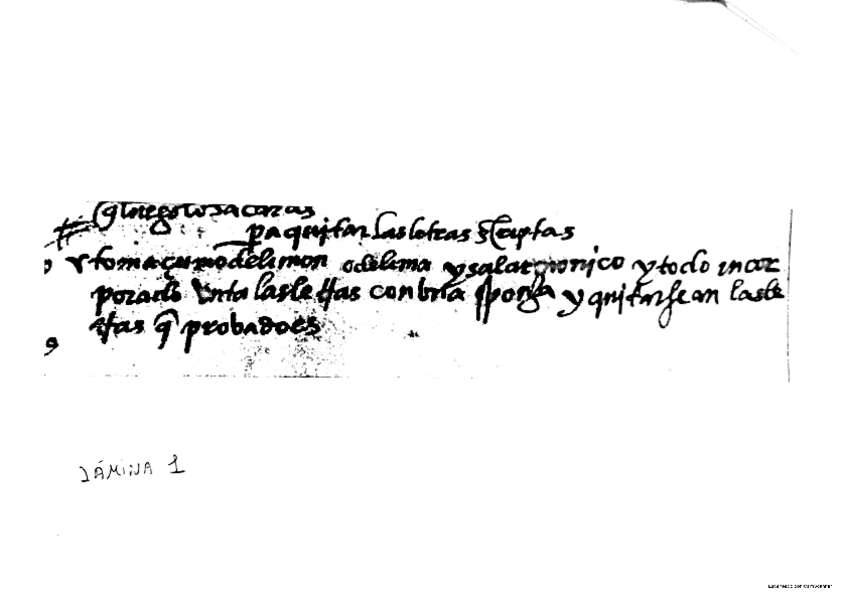 pa quitar las letras scriptas
y toma çumo de limon o de lima y sal armonico y todo incor
porado unta las letras con una sponga y quitarsean las le
tras q probado es
LÁMINA 1